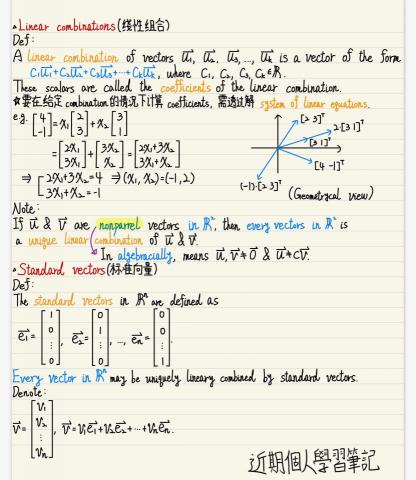 •Linear combinations(线性组合)
Def:
A linear combination of vectors u₁, u₂, u₃, ..., uₖ is a vector of the form
C₁u₁+C₂u₂+C₃u₃+⋯+Cₖuₖ, where C₁, C₂, C₃, Cₖ∈R.
These scalars are called the coefficients of the linear combination.
☆要在给定combination的情况下计算 coefficients, 需透过解 system of linear equations.
e.g. [4 -1] = x₁[2 3] + x₂[3 1]
= [2x₁ 3x₁] + [3x₂ x₂] = [2x₁+3x₂ 3x₁+x₂]
⇒ { 2x₁+3x₂=4 ⇒ (x₁, x₂)=(-1, 2)
3x₁+x₂=-1
[2 3]ᵀ
2[3 1]ᵀ
[3 1]ᵀ
[4 -1]ᵀ
(-1)·[2 3]ᵀ
(Geometrycal view)
Note:
If u & v are nonparrel vectors in R², then every vectors in R² is
a unique linear combination of u & v.
In algebracially, means u, v≠0 & u≠cv.
•Standard vectors(标准向量)
Def:
The standard vectors in Rⁿ are defined as
e₁=[1 0 ⋮ 0], e₂=[0 1 ⋮ 0], ..., eₙ=[0 0 ⋮ 1].
Every vector in Rⁿ may be uniquely lineary combined by standard vectors.
Denote:
v=[v₁ v₂ ⋮ vₙ], v=v₁e₁+v₂e₂+⋯+vₙeₙ.
近期個人學習筆記